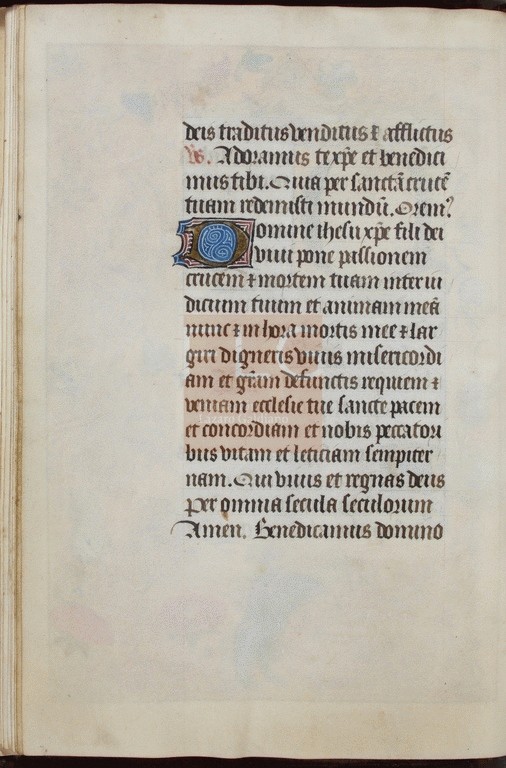 deis traditus venditus ⁊ afflictus
V̷. Adoramus te xp̄e et benedici
mus tibi. Quia per sanctā crucē
tuam redemisti mundū. Orem9
Domine ihesu xp̄e fili dei
viui pone passionem
crucem ⁊ mortem tuam inter iu
dicium tuum et animam meā
nunc ⁊ in hora mortis mee ⁊ lar
giri digneris viuis misericordi
am et gr̄am defunctis requiem ⁊
veniam ecclesie tue sancte pacem
et concordiam et nobis peccatori
bus vitam et leticiam sempiter
nam. Qui viuis et regnas deus
Per omnia secula seculorum
Amen. Benedicamus domino